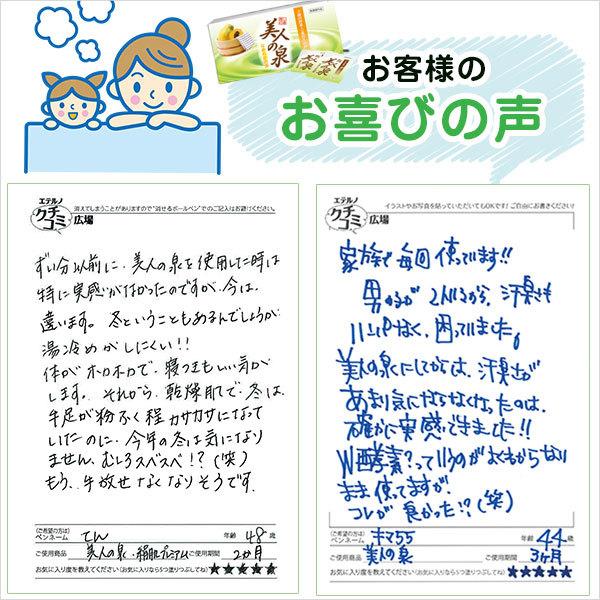 美人の泉
お客様の
お喜びの声
エテルノ
クチコミ広場
消えてしまうことがありますので"消せるボールペン"でのご記入はお避けください。
ずい分以前に、美人の泉を使用した時は
特に実感がなかったのですが、今は、
違います。冬ということもあるんでしょうが
湯冷めがしにくい!!
体がホカホカで、寝つきもいい気が
します。それから、乾燥肌で、冬は、
手足が粉ふく程カサカサになって
いたのに、今年の冬は気になり
ません、むしろスベスベ!?(笑)
もう、手放せなくなりそうです。
(ご希望の方は)
ペンネーム てん 年齢 48 歳
ご使用商品 美人の泉・絹肌プレミアム ご使用期間 2か月
お気に入り度を教えてください(お気に入りなら5つ塗りつぶしてね) ★★★★★
エテルノ
クチコミ広場
イラストやお写真を貼っていただいてもOKです!ご自由にお書きください!
家族で毎回使っています!!
男の子が2人いるから、汗臭さも
ハンパなく、困っていました。
美人の泉にしてからは、汗臭さが
あまり気にならなくなったのは、
確かに実感できました!!
W酵素?っていうのがよくわからない
まま使ってますが、
コレが良かった!?(笑)
(ご希望の方は)
ペンネーム 年齢 44 歳
ご使用商品 美人の泉 ご使用期間 3ヶ月
お気に入り度を教えてください(お気に入りなら5つ塗りつぶしてね) ★★★★★